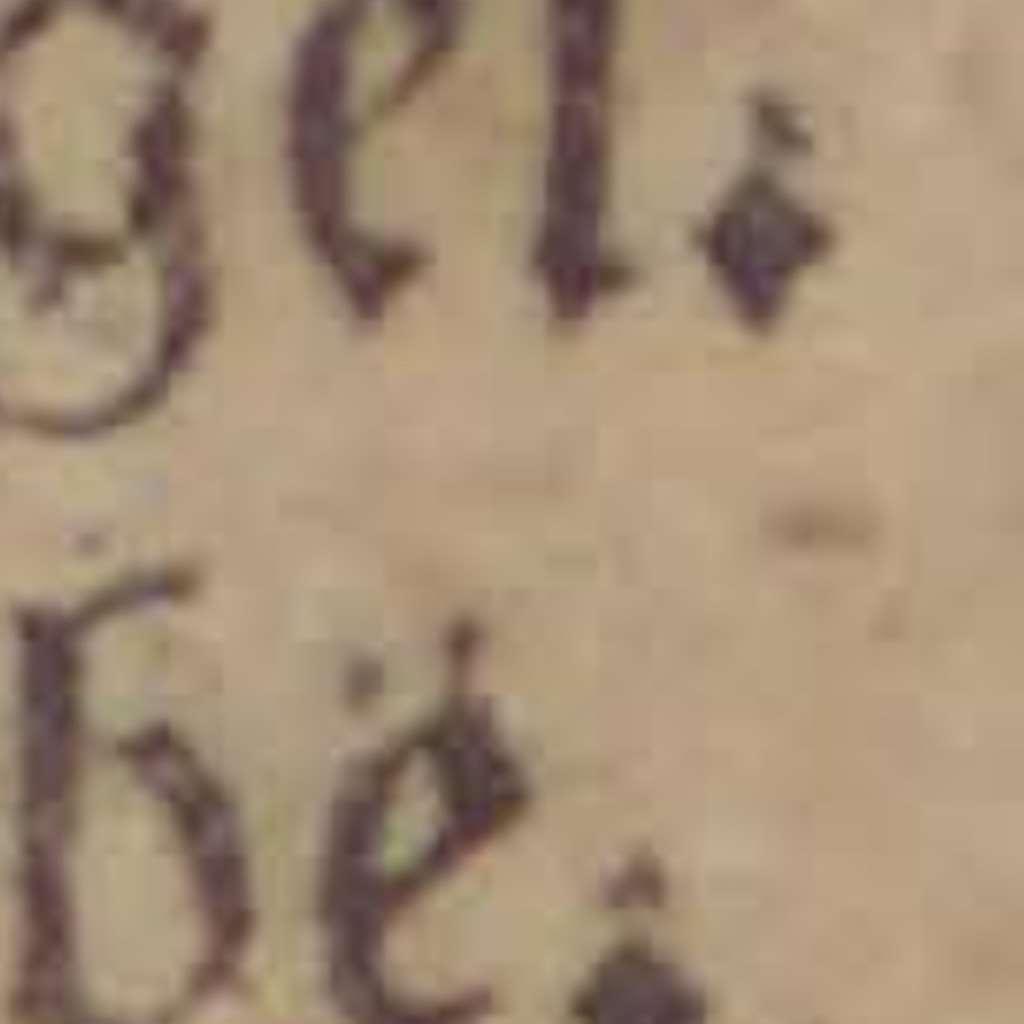 gel.
be.